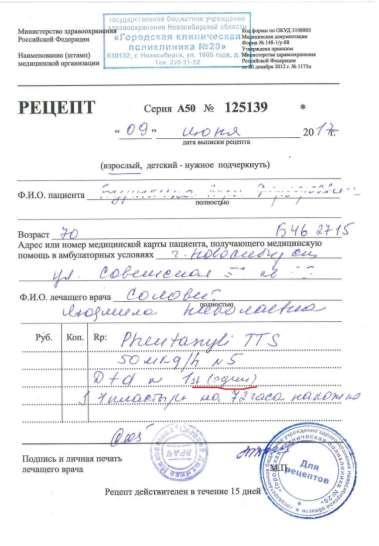 Министерство здравоохранения
Российской Федерации
Наименование (штамп)
медицинской организации
государственное бюджетное учреждение
здравоохранения Новосибирской области
«Городская клиническая
поликлиника №20»
Код формы по ОКУД 3108805
Медицинская документация
Форма № 148-1/у-88
Утверждена приказом
Министерства здравоохранения
Российской Федерации
РЕЦЕПТ Серия А50 № 125139 *
"09" июня 2017г.
дата выписки рецепта
(взрослый, детский - нужное подчеркнуть)
Ф.И.О. пациента
полностью
Возраст 70 Б46 2715
Адрес или номер медицинской карты пациента, получающего медицинскую
помощь в амбулаторных условиях г. Новосибирск
ул. Советская
Ф.И.О. лечащего врача Соловей
полностью
Людмила Николаевна
Руб. Коп. Rp: Phentanyli TTS
50 мкд/h N5
D t d N 1st (один)
S 1 пластырь на 72 часа накожно
Подпись и личная печать
лечащего врача
М.П.
Для
рецептов
Рецепт действителен в течение 15 дней